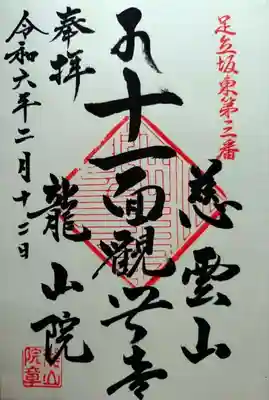 足立坂東第三番
慈雲山
十一面觀世音
龍山院
奉拝
令和六年二月十二日
龍山
院章